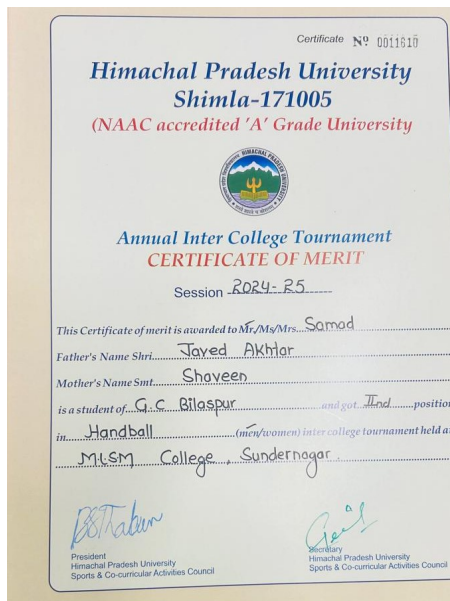 Certificate Nº 0011610
Himachal Pradesh University
Shimla-171005
(NAAC accredited 'A' Grade University
HIMACHAL PRADESH UNIVERSITY
Annual Inter College Tournament
CERTIFICATE OF MERIT
Session 2024-25
This Certificate of merit is awarded to Mr./Ms/Mrs. Samad
Father's Name Shri. Javed Akhtar
Mother's Name Smt. Shaveen
is a student of G.C Bilaspur and got IInd position
in Handball (men/women) inter college tournament held at
MLSM College, Sundernagar.
President
Himachal Pradesh University
Sports & Co-curricular Activities Council
Secretary
Himachal Pradesh University
Sports & Co-curricular Activities Council